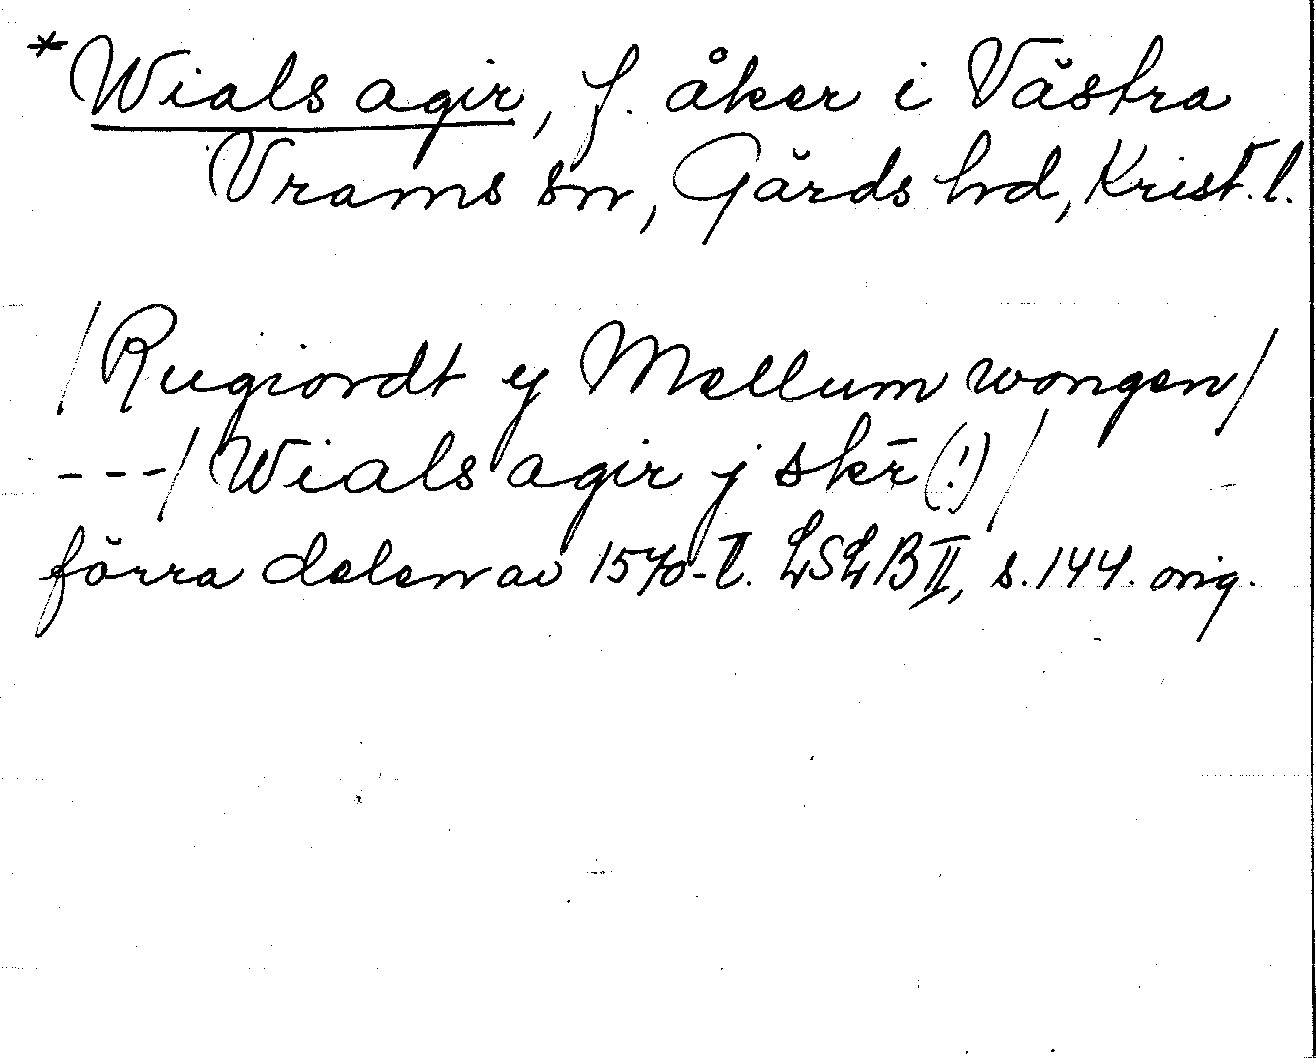 *Wials agir, f. åker i Västra
Vrams sn, Gärds hd, Krist. l.
/Rugiordt y Mellum wongen/
---/Wials agir y skr̄ (!)/
förra delen av 1570-t. LSLB II, s. 144. orig.